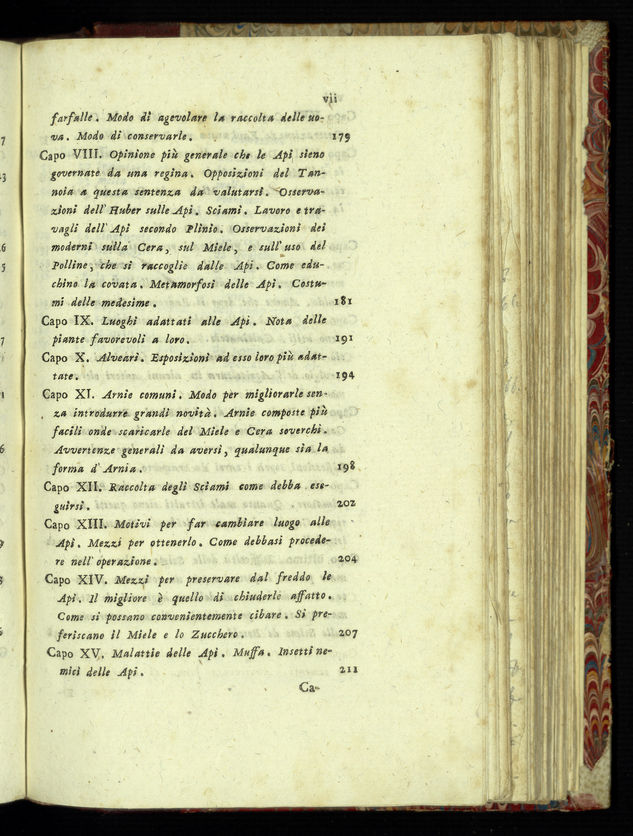 vij
farfalle. Modo di agevolare la raccolta delle uo-
va. Modo di conservarle. 179
Capo VIII. Opinione più generale che le Api sieno
governate da una regina. Opposizioni del Tan-
noia a questa sentenza da valutarsi. Osserva-
zioni dell'Huber sulle Api. Sciami. Lavoro e tra-
vagli dell'Api secondo Plinio. Osservazioni dei
moderni sulla Cera, sul Miele, e sull'uso del
Polline, che si raccoglie dalle Api. Come edu-
chino la covata. Metamorfosi delle Api. Costu-
mi delle medesime. 181
Capo IX. Luoghi adattati alle Api. Nota delle
piante favorevoli a loro. 191
Capo X. Alveari. Esposizioni ad esso loro più adat-
tate. 194
Capo XI. Arnie comuni. Modo per migliorarle sen-
za introdurre grandi novità. Arnie composte più
facili onde scaricarle del Miele e Cera soverchi.
Avvertenze generali da aversi, qualunque sia la
forma d'Arnia. 198
Capo XII. Raccolta degli Sciami come debba ese-
guirsi. 202
Capo XIII. Motivi per far cambiare luogo alle
Api. Mezzi per ottenerlo. Come debbasi procede-
re nell'operazione. 204
Capo XIV. Mezzi per preservare dal freddo le
Api. Il migliore è quello di chiuderle affatto.
Come si possano convenientemente cibare. Si pre-
feriscano il Miele e lo Zucchero. 207
Capo XV. Malattie delle Api. Muffa. Insetti ne-
mici delle Api. 211
Ca-